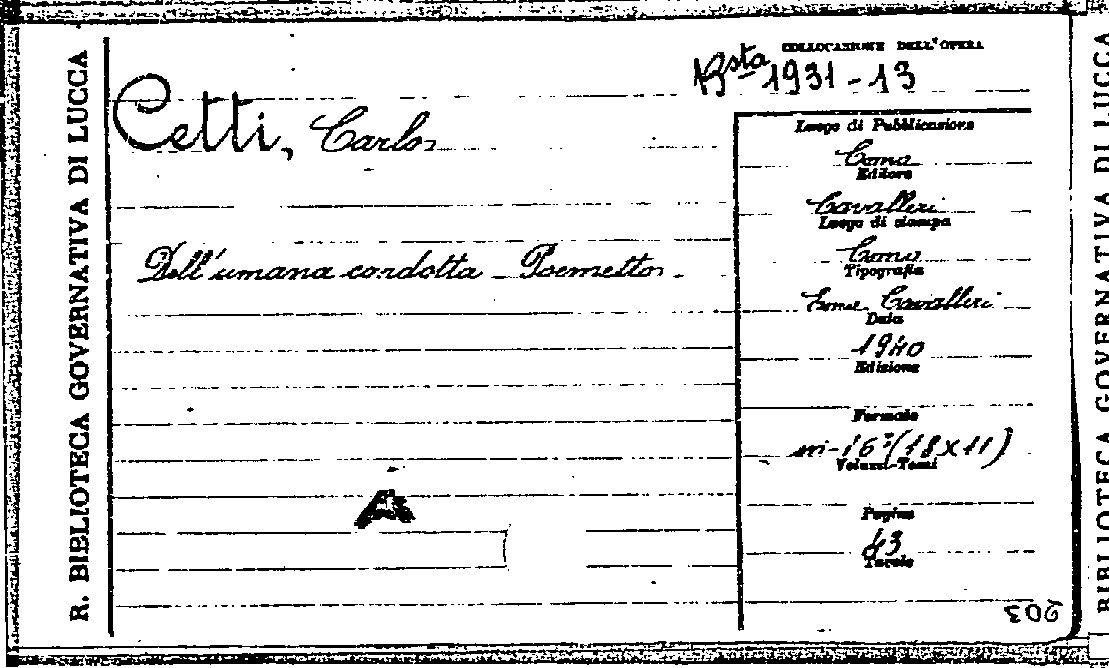 R. BIBLIOTECA GOVERNATIVA DI LUCCA
COLLOCAZIONE DELL'OPERA
Bsta 1931-13
Cetti, Carlo
Dell'umana condotta - Poemetto -
Luogo di Pubblicazione
Como
Editore
Cavalleri
Luogo di stampa
Como
Tipografia
Como Cavalleri
Data
1940
Edizione
Formato
in-16° (18x11)
Volumi-Tomi
Pagine
43
Tavole
A
203
BIBLIOTECA GOVERNATIVA DI LUCCA